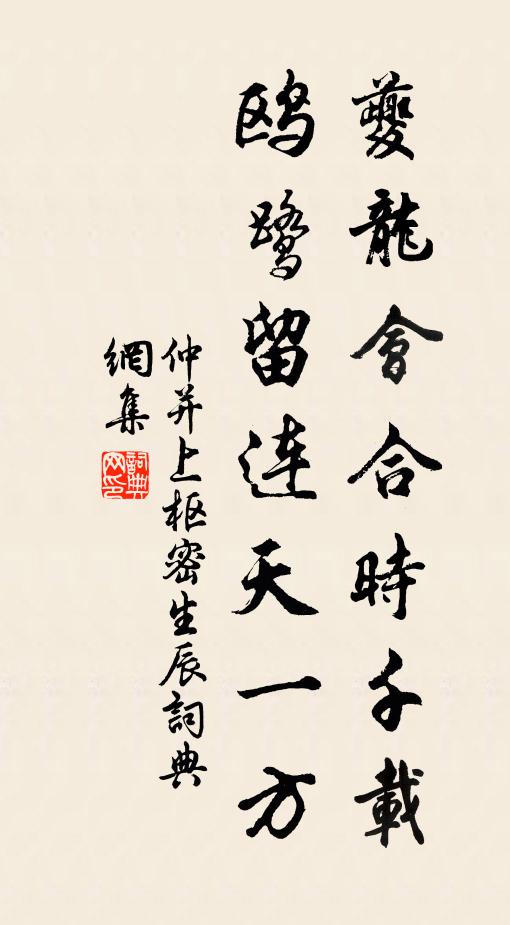 夔龍會合時千載
鸥鹭留连天一方
仲并上枢密生辰詞典
網集
詞典網印